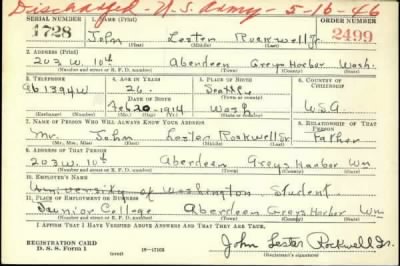 Discharged - U.S. Army - 5-16-46
SERIAL NUMBER 1. NAME (Print) ORDER NUMBER
1728 John Lester Rockwell Jr. 2499
(First) (Middle) (Last)
2. ADDRESS (Print)
203 W. 10th Aberdeen Greys Harbor Wash.
(Number and street or R. F. D. number) (Town) (County) (State)
3. TELEPHONE 4. AGE IN YEARS 5. PLACE OF BIRTH 6. COUNTRY OF CITIZENSHIP
1394W 26 Seattle
DATE OF BIRTH (Town or county)
Feb 20 - 1914 Wash U.S.A
(Exchange) (Number) (Mo.) (Day) (Yr.) (State or country)
7. NAME OF PERSON WHO WILL ALWAYS KNOW YOUR ADDRESS 8. RELATIONSHIP OF THAT PERSON
Mr. John Lester Rockwell Sr Father
(Mr., Mrs., Miss) (First) (Middle) (Last)
9. ADDRESS OF THAT PERSON
203 W. 10th Aberdeen Greys Harbor Wn
(Number and street or R. F. D. number) (Town) (County) (State)
10. EMPLOYER'S NAME
University of Washington Student
11. PLACE OF EMPLOYMENT OR BUSINESS
Junior College Aberdeen Greys Harbor Wn
(Number and street or R. F. D. number) (Town) (County) (State)
I AFFIRM THAT I HAVE VERIFIED ABOVE ANSWERS AND THAT THEY ARE TRUE.
REGISTRATION CARD
D. S. S. Form 1 (over) 16-17105
John Lester Rockwell Jr.
(Registrant's signature)